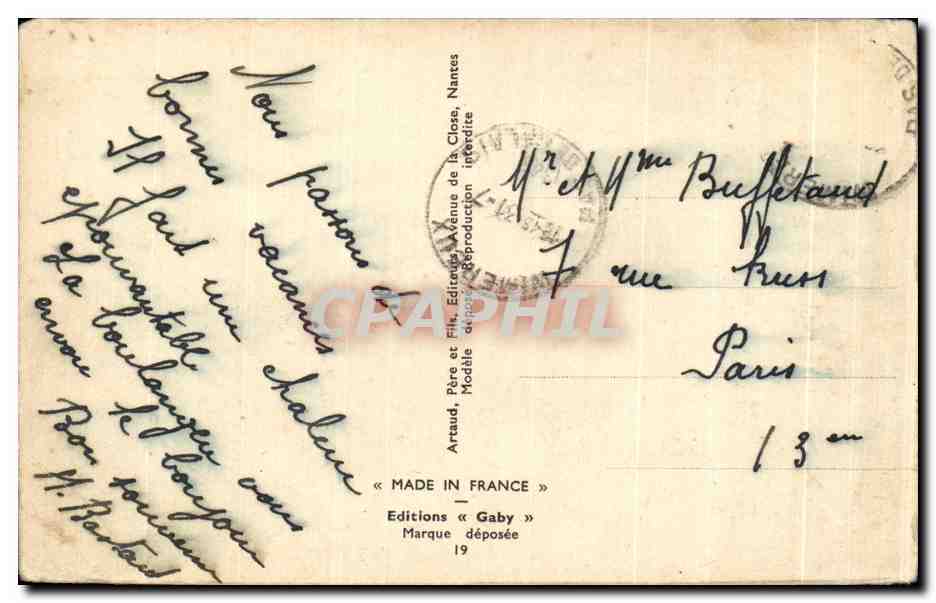 Nous passons de
bonnes vacances
Il fait une chaleur
epouvantable
La boulangere vous
envoie le bonjour
Bon souvenir
Artaud, Père et Fils, Editeurs, Avenue de la Close, Nantes
Modèle déposé, Reproduction interdite
Mr et Mme Buffetaud
7 rue Kuss
Paris
13 em
« MADE IN FRANCE »
Editions « Gaby »
Marque déposée
19
CPAPHIL